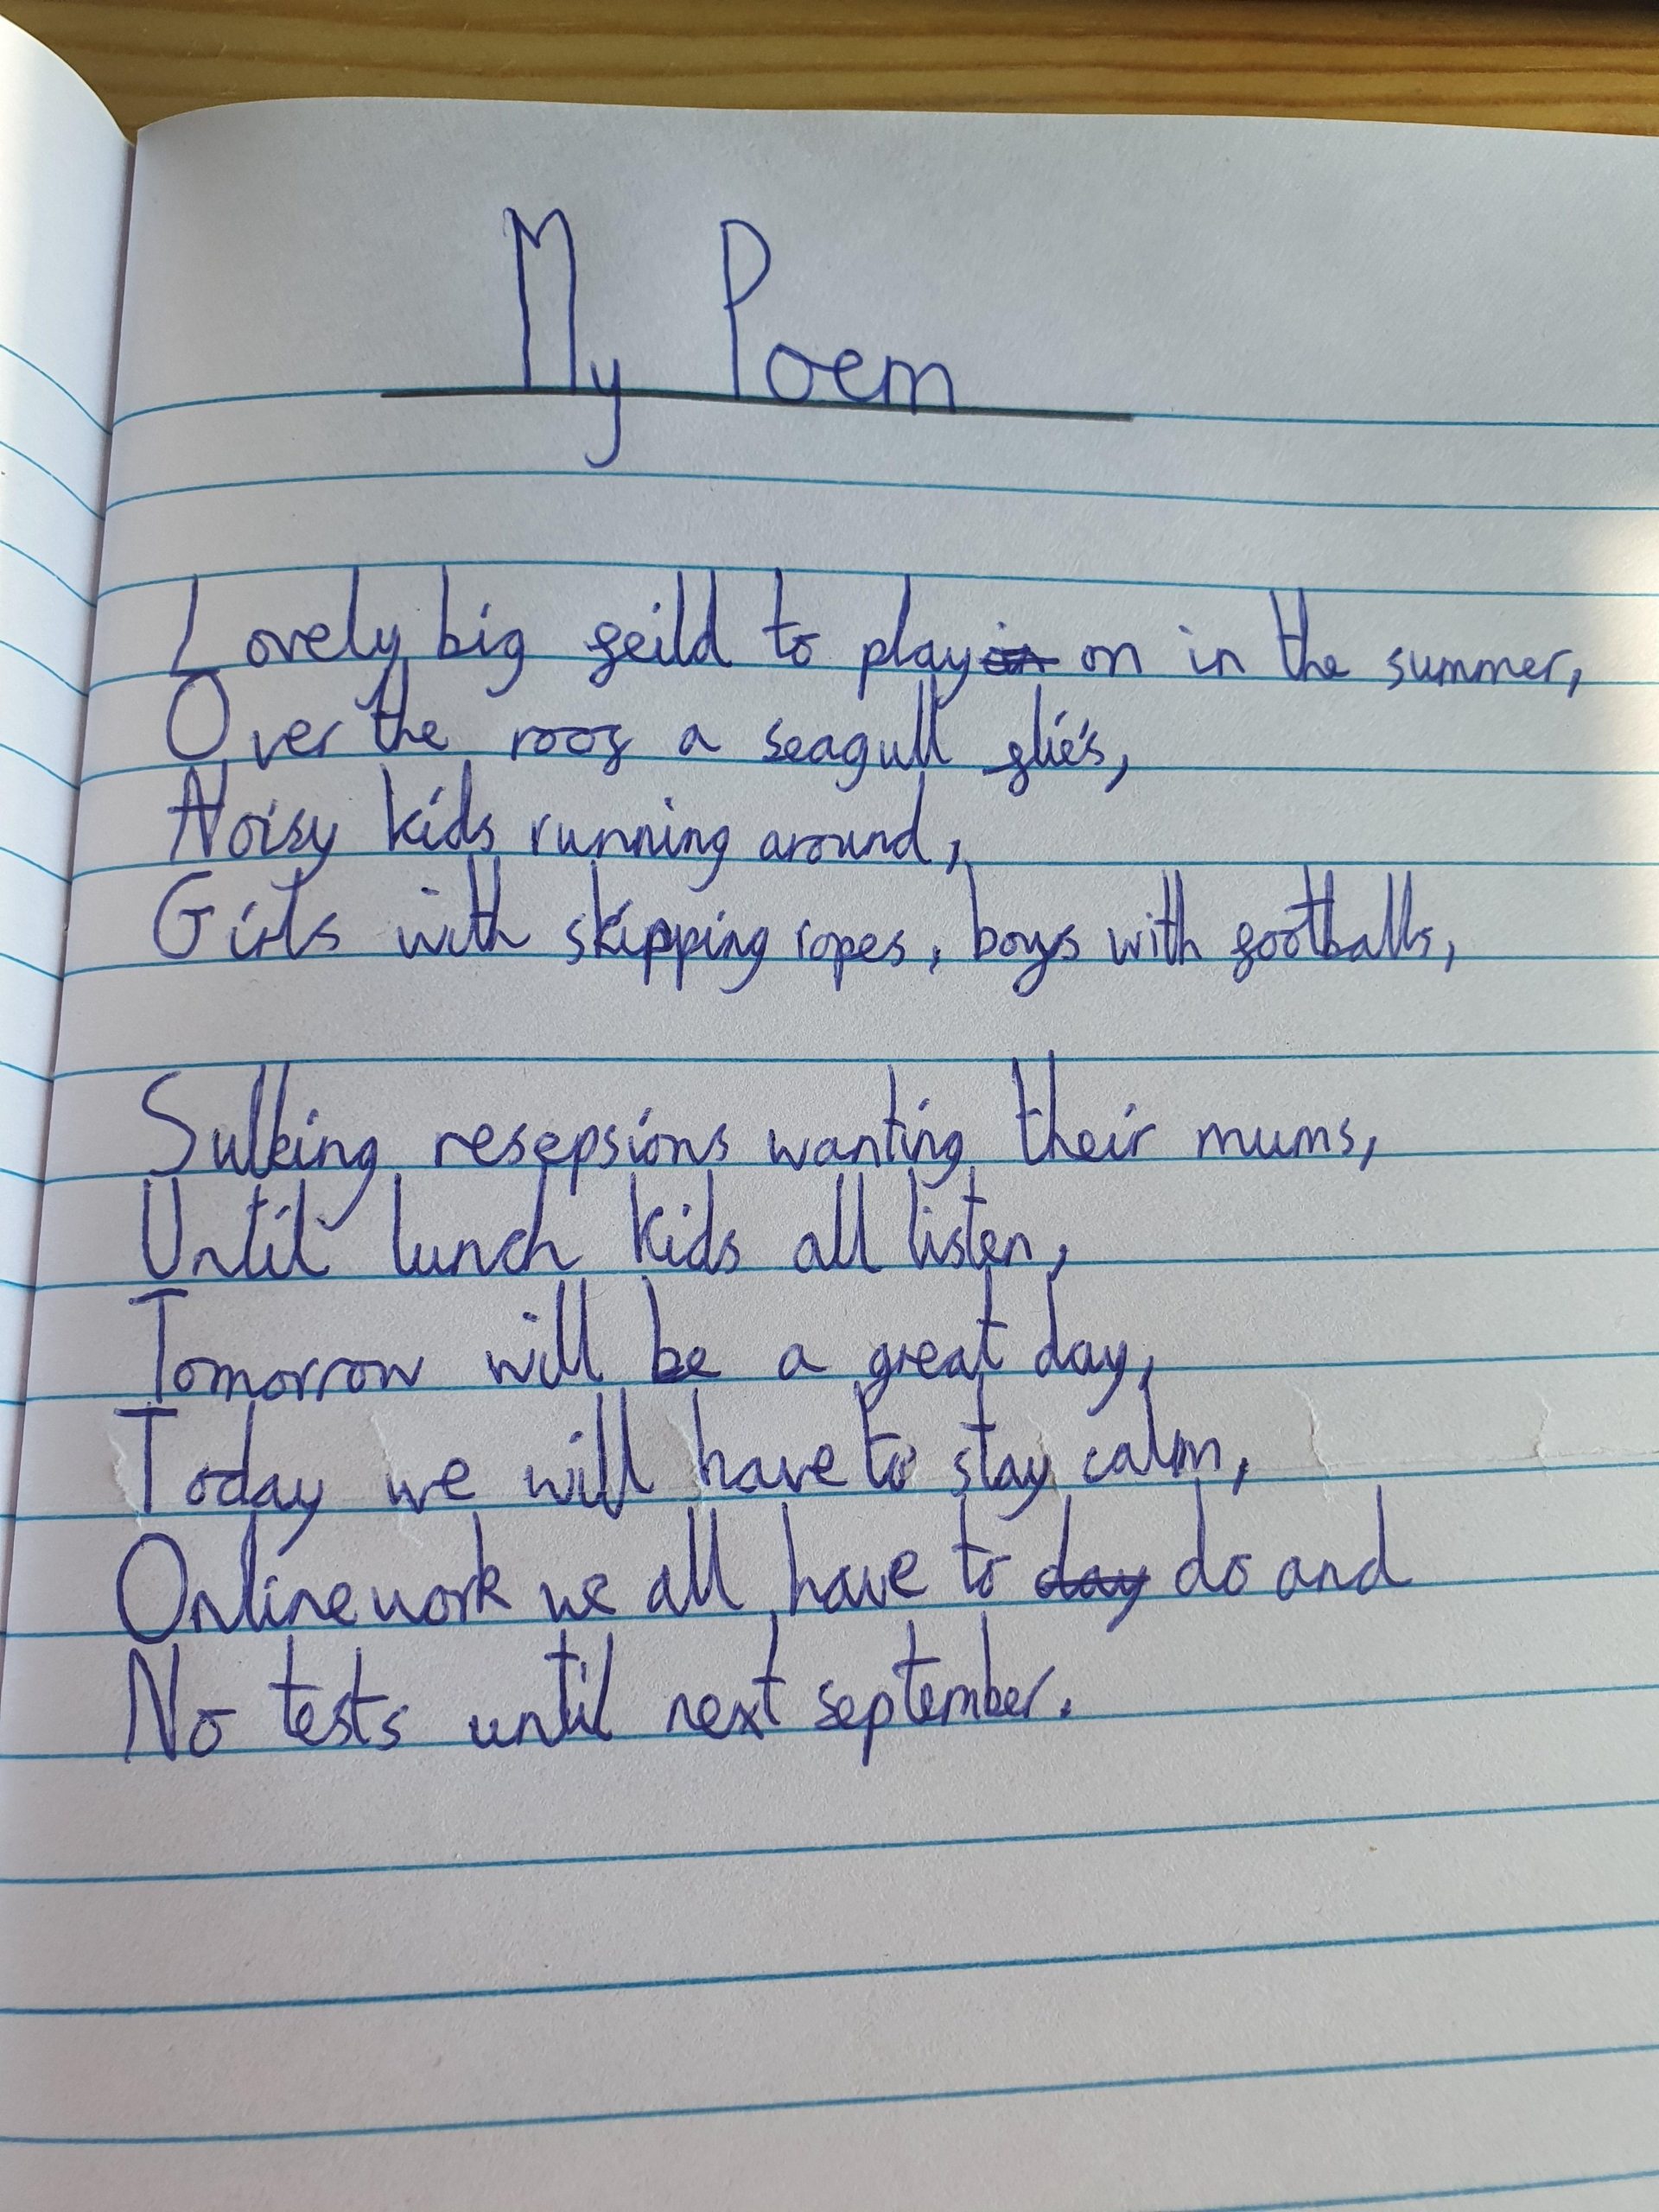 My Poem
Lovely big feild to play in on in the summer,
Over the roof a seagull flie's,
Noisy kids running around,
Girls with skipping ropes, boys with footballs,
Sulking resepsions wanting their mums,
Until lunch kids all listen,
Tomorrow will be a great day,
Today we will have to stay calm,
Online work we all have to day do and
No tests until next september.